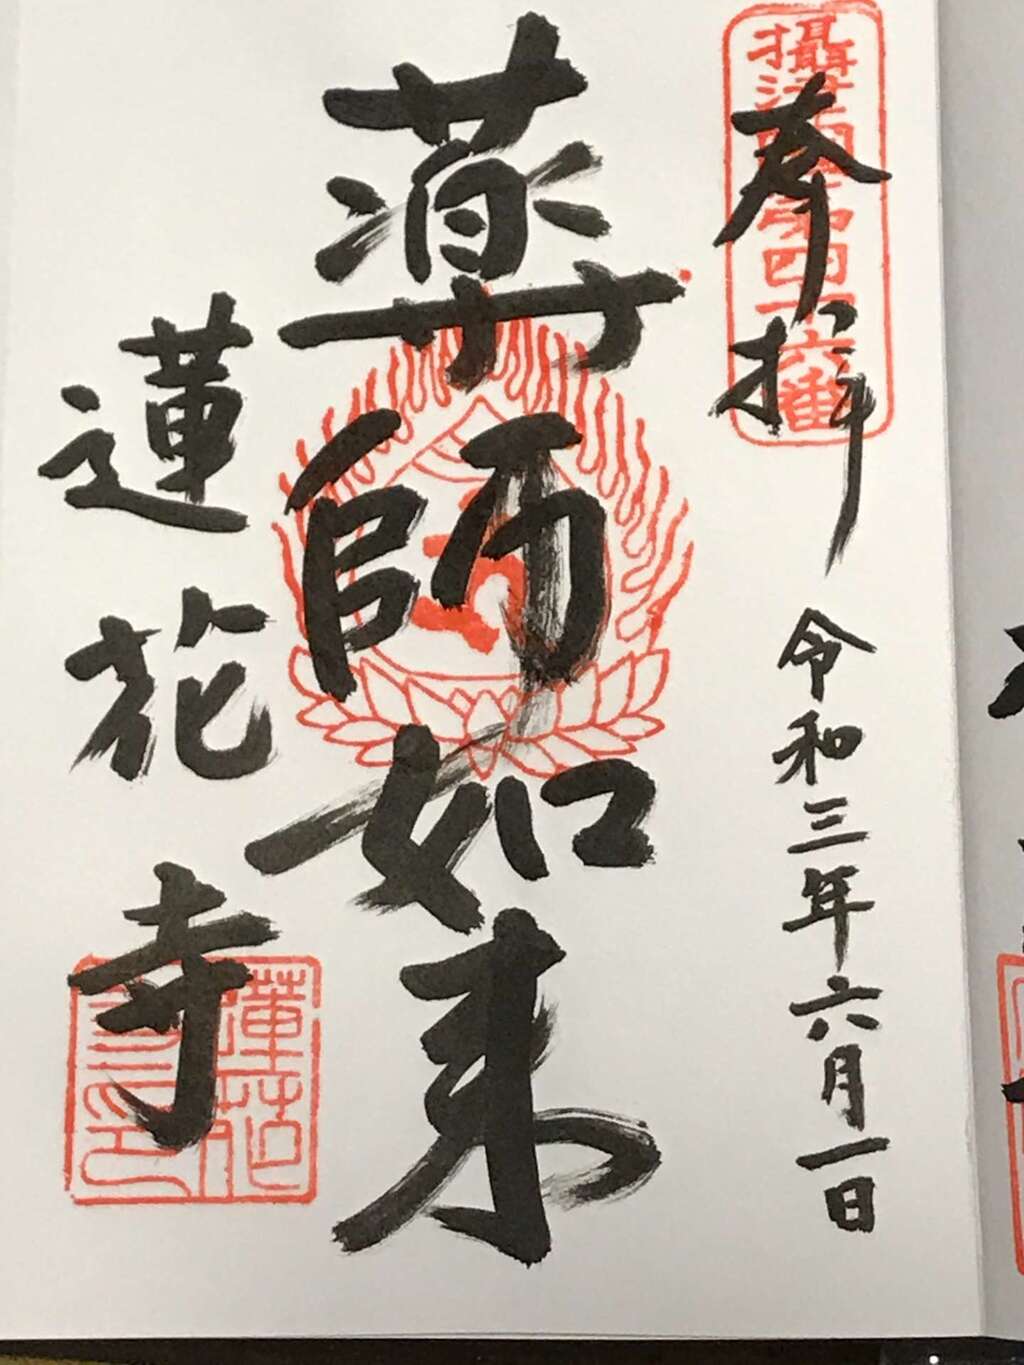 奉拝
攝津四国第四十六番
令和三年六月一日
薬師如来
蓮花寺
蓮花
寺印